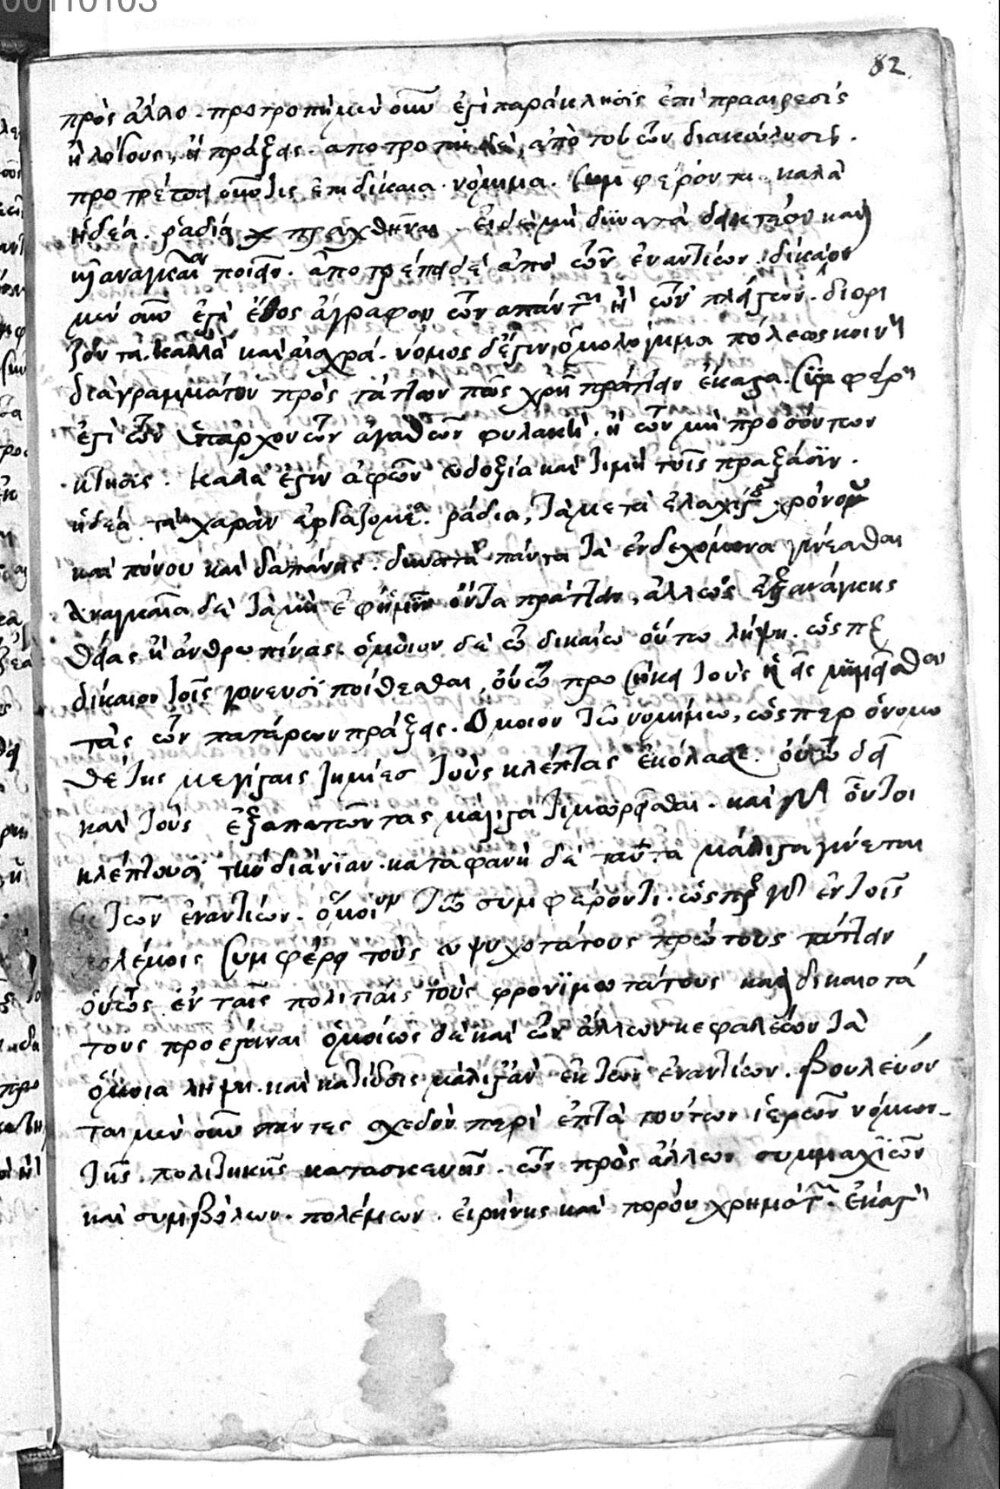 00110103
82
πρὸς ἄλλο. προτροπὴ μὲν οὖν ἐστὶ παράκλησις ἐπὶ προαιρέσεις
ἢ λόγους, ἢ πράξεις. ἀποτροπὴ δὲ, ἀπὸ τούτων διακώλυσις.
προτρέπει οὖν τις ἐπὶ δίκαια. νόμιμα. συμφέροντα. καλὰ
ἡδέα. ῥάδια πραχθῆναι. εἰ δὲ μὴ δυνατὰ δεικτέον καὶ
ἀναγκαῖα ποιεῖν. ἀποτρέπει δὲ ἀπὸ τῶν ἐναντίων. δίκαιον
μὲν οὖν ἐστὶ ἔθος ἄγραφον τῶν ἁπάντων ἢ τῶν πλείστων. διορί
ζον τὰ καλὰ καὶ αἰσχρά. νόμος δ' ἐστιν, ὁμολόγημα πόλεως κοινὴ
διὰ γραμμάτων πρὸς τάττων πῶς χρὴ πράττειν ἕκαστα. συμφέρον
ἐστὶ τῶν ὑπαρχόντων ἀγαθῶν φυλακὴ. ἢ τῶν μὴ προσόντων
κτῆσις. καλὰ ἐστὶν ἀφ' ὧν εὐδοξία καὶ τιμὴ τοῖς πράξασιν.
ἡδέα τὰ χαρὰν ἐργαζόμενα. ῥάδια, τὰ μετὰ ἐλαχίστου χρόνου
καὶ πόνου καὶ δαπάνης. δυνατὰ πάντα τὰ ἐνδεχόμενα γίνεσθαι
ἀναγκαῖα δὲ τὰ μὴ ἐφ' ἡμῖν ὄντα πράττειν, ἀλλ' ὡς ἐξ ἀνάγκης
θείας ἢ ἀνθρωπίνας. ὅμοιον δὲ τῷ δικαίῳ οὕτω λήψῃ. ὥσπερ
δίκαιον τοῖς γονεῦσι πείθεσθαι, οὕτω προσήκει τοὺς μιμεῖσθαι
τὰς τῶν πατέρων πράξεις. ὅμοιον τῷ νομίμῳ, ὥσπερ ὁ νομο
θέτης μεγίσταις ζημίαις τοὺς κλέπτας ἐκόλασε. οὕτω δεῖ
καὶ τοὺς ἐξαπατῶντας μάλιστα τιμωρεῖσθαι. καὶ γὰρ οὗτοι
κλέπτουσι τὴν διάνοιαν. καταφανῆ δὲ ταῦτα μάλιστα γίνεται
ἐκ τῶν ἐναντίων. ὅμοιον τῷ συμφέροντι. ὥσπερ γὰρ ἐν τοῖς
πολέμοις συμφέρει τοὺς εὐψυχοτάτους πρώτους τάττειν
οὕτως ἐν ταῖς πολιτείαις τοὺς φρονιμωτάτους καὶ δικαιοτά
τους προεστάναι ὁμοίως δὲ καὶ τῶν ἄλλων κεφαλαίων τὰ
ὅμοια λήψῃ. καὶ κατίδοις μάλιστ' ἂν ἐκ τῶν ἐναντίων. βουλεύον
ται μὲν οὖν πάντες σχεδὸν περὶ ἑπτὰ τούτων ἱερῶν νόμων
τῆς πολιτικῆς κατασκευῆς. τῶν πρὸς ἄλλων συμμαχιῶν
καὶ συμβόλων. πολέμων. εἰρήνης καὶ πόρου χρημάτων. ἑκάστη